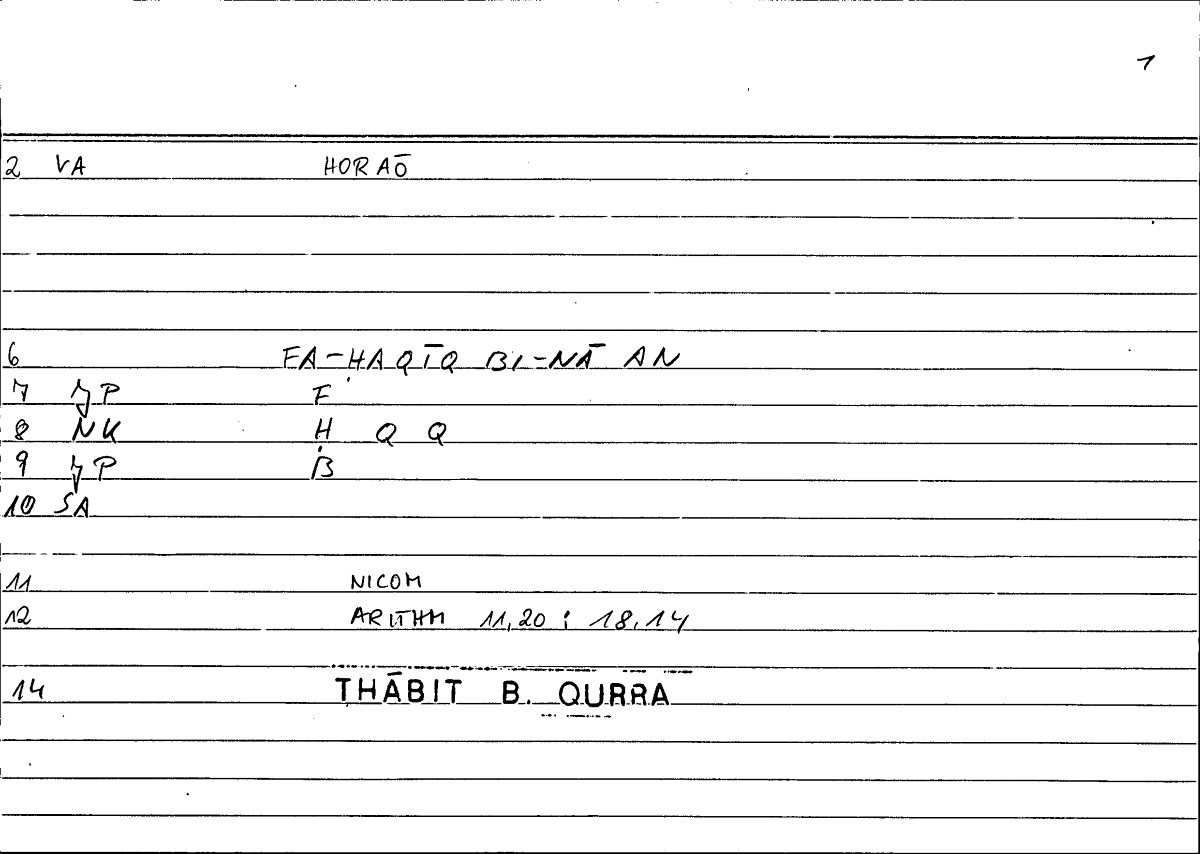 1
2 VA HORAŌ
6 FA-ḤAQĪQ BI-NĀ AN
7 JP F
8 NK Ḥ Q Q
9 JP B
10 SA
11 NICOM
12 ARITHM 11,20 ; 18,14
14 THĀBIT B. QURRA